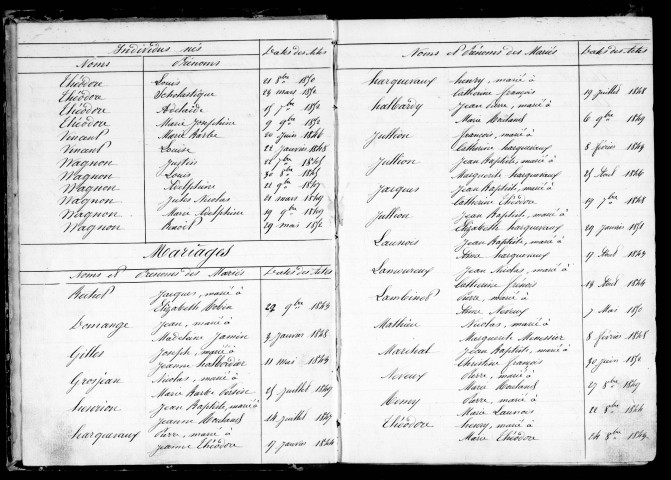 Individus nés Dates des Actes
Noms Prénoms
Théodore Louis 21 8bre 1850
Théodore Scholastique 23 mars 1852
Théodore Adélaïde 15 7bre 1850
Théodore Marie Joséphine 9 9bre 1852
Vincent Marie Barbe 20 Juin 1846
Vincent Louise 22 Janvier 1848
Wagnon Justin 22 7bre 1845
Wagnon Louis 30 8bre 1845
Wagnon Delphine 21 9bre 1849
Wagnon Jules Nicolas 21 mars 1849
Wagnon Marie Delphine 19 9bre 1849
Wagnon 29 mai 1852
Mariages
Noms et Prénoms des Mariés Dates des Actes
Jacques, marié à
Elizabeth Robin 27 9bre 1843
Domange Jean, marié à
Madelaine Jamin 3 Janvier 1848
Gilles Joseph, marié à
Jeanne 11 mai 1843
Grosjean Nicolas, marié à
Marie Barbe 25 Juillet 1849
Jean Baptiste, marié à
Jeanne 14 Juillet 1847
harquevaux Pierre, marié à
Jeanne Théodore 17 Janvier 1844
Noms et Prénoms des Mariés Dates des Actes
harquevaux henry, marié à
Catherine françois 19 Juillet 1848
halbardy Jean, marié à
Marie 6 9bre 1849
Jullion françois, marié à
Catherine harquevaux 8 février 1843
Jullion Jean Baptiste, marié à
Marguerite harquevaux 25 Aout 1846
Jacques Jean Baptiste, marié à
Catherine Théodore 19 7bre 1848
Jullion Jean Baptiste, marié à
Elizabeth harquevaux 29 Janvier 1851
Launois Jean Baptiste, marié à
Anne harquevaux 17 Aout 1843
Jean Nicolas, marié à
Catherine 13 Aout 1846
Lambinet Pierre, marié à
Anne Neveux 7 Mai 1850
Mathieu Nicolas, marié à
Marguerite 8 février 1848
Maréchal Jean Baptiste, marié à
Christine françois 30 Juin 1852
Neveux Pierre, marié à
Marie 27 8bre 1847
Henry Pierre, marié à
Marie Launois 22 8bre 1844
Théodore henry, marié à
Marie Théodore 24 8bre 1849